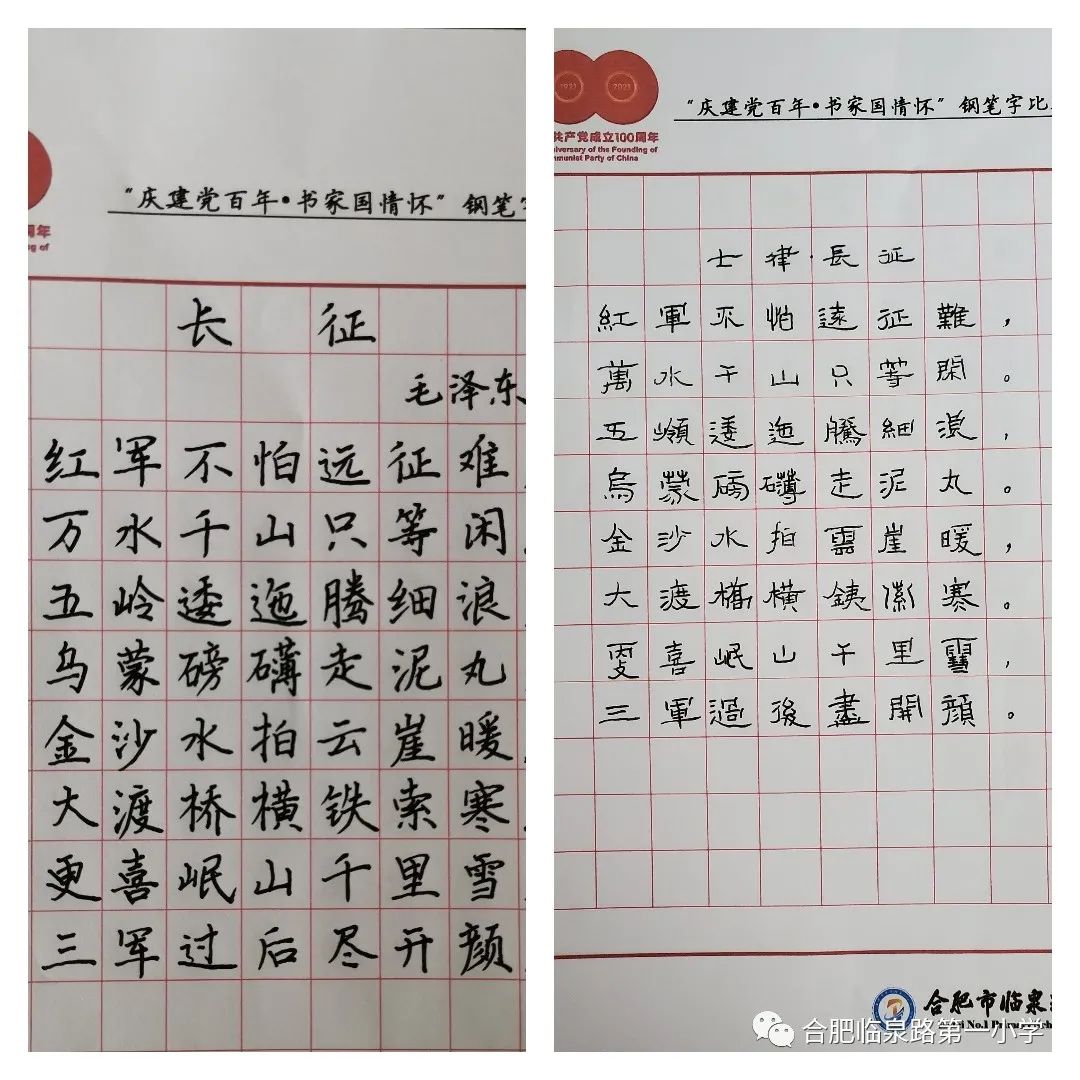 “庆建党百年·书家国情怀”钢笔
长 征
毛泽东
红军不怕远征难
万水千山只等闲
五岭逶迤腾细浪
乌蒙磅礴走泥丸
金沙水拍云崖暖
大渡桥横铁索寒
更喜岷山千里雪
三军过后尽开颜
1921 2021
共产党成立100周年
iversary of the Founding of
mmunist Party of China
“庆建党百年·书家国情怀”钢笔字比
七律·長征
紅軍不怕遠征難，
萬水千山只等閑。
五嶺逶迤騰細浪，
烏蒙磅礴走泥丸。
金沙水拍雲崖暖，
大渡橋橫鐵索寒。
更喜岷山千里雪，
三軍過後盡開顔。
合肥市临泉
合肥临泉路第一小学